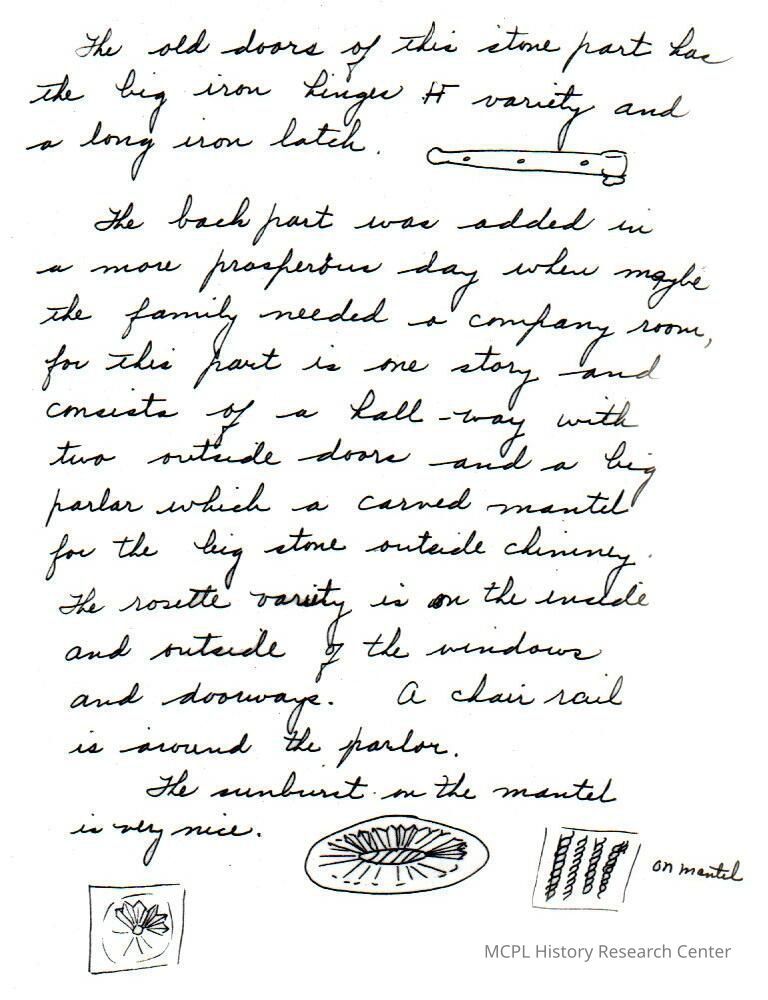 The old doors of this stone part has
the big iron hinges H variety and
a long iron latch.
The back part was added in
a more prosperous day when maybe
the family needed a company room,
for this part is one story and
consists of a hall-way with
two outside doors and a big
parlar which a carved mantel
for the big stone outside chimney.
The rosette variety is on the inside
and outside of the windows
and doorways. A chair rail
is around the parlor.
The sunburst on the mantel
is very nice.
on mantel
MCPL History Research Center